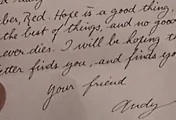 ber, Red. Hope is a good thing,
the best of things, and no good
ever dies. I will be hoping
tter finds you, and finds yo
Your friend
Andy